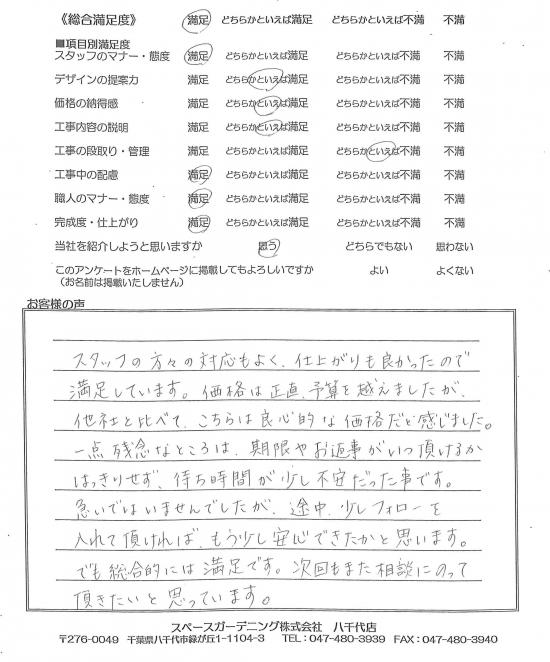 《総合満足度》 満足 どちらかといえば満足 どちらかといえば不満 不満
■項目別満足度
スタッフのマナー・態度 満足 どちらかといえば満足 どちらかといえば不満 不満
デザインの提案力 満足 どちらかといえば満足 どちらかといえば不満 不満
価格の納得感 満足 どちらかといえば満足 どちらかといえば不満 不満
工事内容の説明 満足 どちらかといえば満足 どちらかといえば不満 不満
工事の段取り・管理 満足 どちらかといえば満足 どちらかといえば不満 不満
工事中の配慮 満足 どちらかといえば満足 どちらかといえば不満 不満
職人のマナー・態度 満足 どちらかといえば満足 どちらかといえば不満 不満
完成度・仕上がり 満足 どちらかといえば満足 どちらかといえば不満 不満
当社を紹介しようと思いますか 思う どちらでもない 思わない
このアンケートをホームページに掲載してもよろしいですか よい よくない
(お名前は掲載いたしません)
お客様の声
スタッフの方々の対応もよく、仕上がりも良かったので
満足しています。価格は正直、予算を越えましたが、
他社と比べて、こちらは良心的な価格だと感じました。
一点残念なところは、期限やお返事がいつ頂けるか
はっきりせず、待ち時間が少し不安だった事です。
急いではいませんでしたが、途中、少しフォローを
入れて頂ければ、もう少し安心できたかと思います。
でも総合的には満足です。次回もまた相談にのって
頂きたいと思っています。
スペースガーデニング株式会社 八千代店
〒276-0049 千葉県八千代市緑が丘1-1104-3 TEL:047-480-3939 FAX:047-480-3940